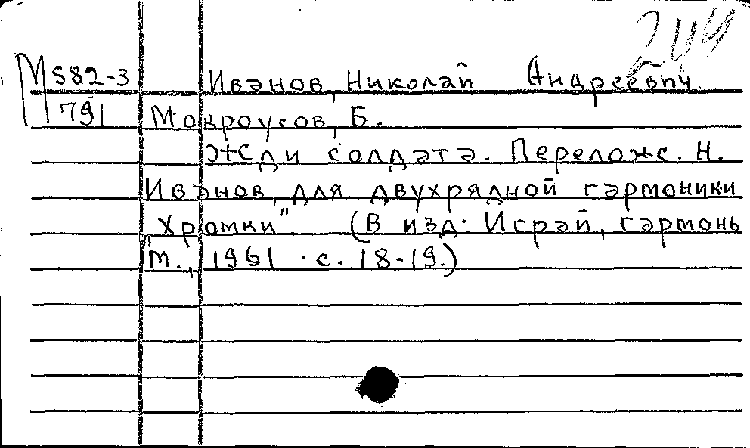 244
М582-3 Иванов, Николай Андреевич.
791 Мокроусов, Б.
Жди солдата. Перелож. Н.
Иванов, для двухрядной гармоники
"Хромки" (В изд: Играй, гармонь
М., 1961 . с. 18-19.)